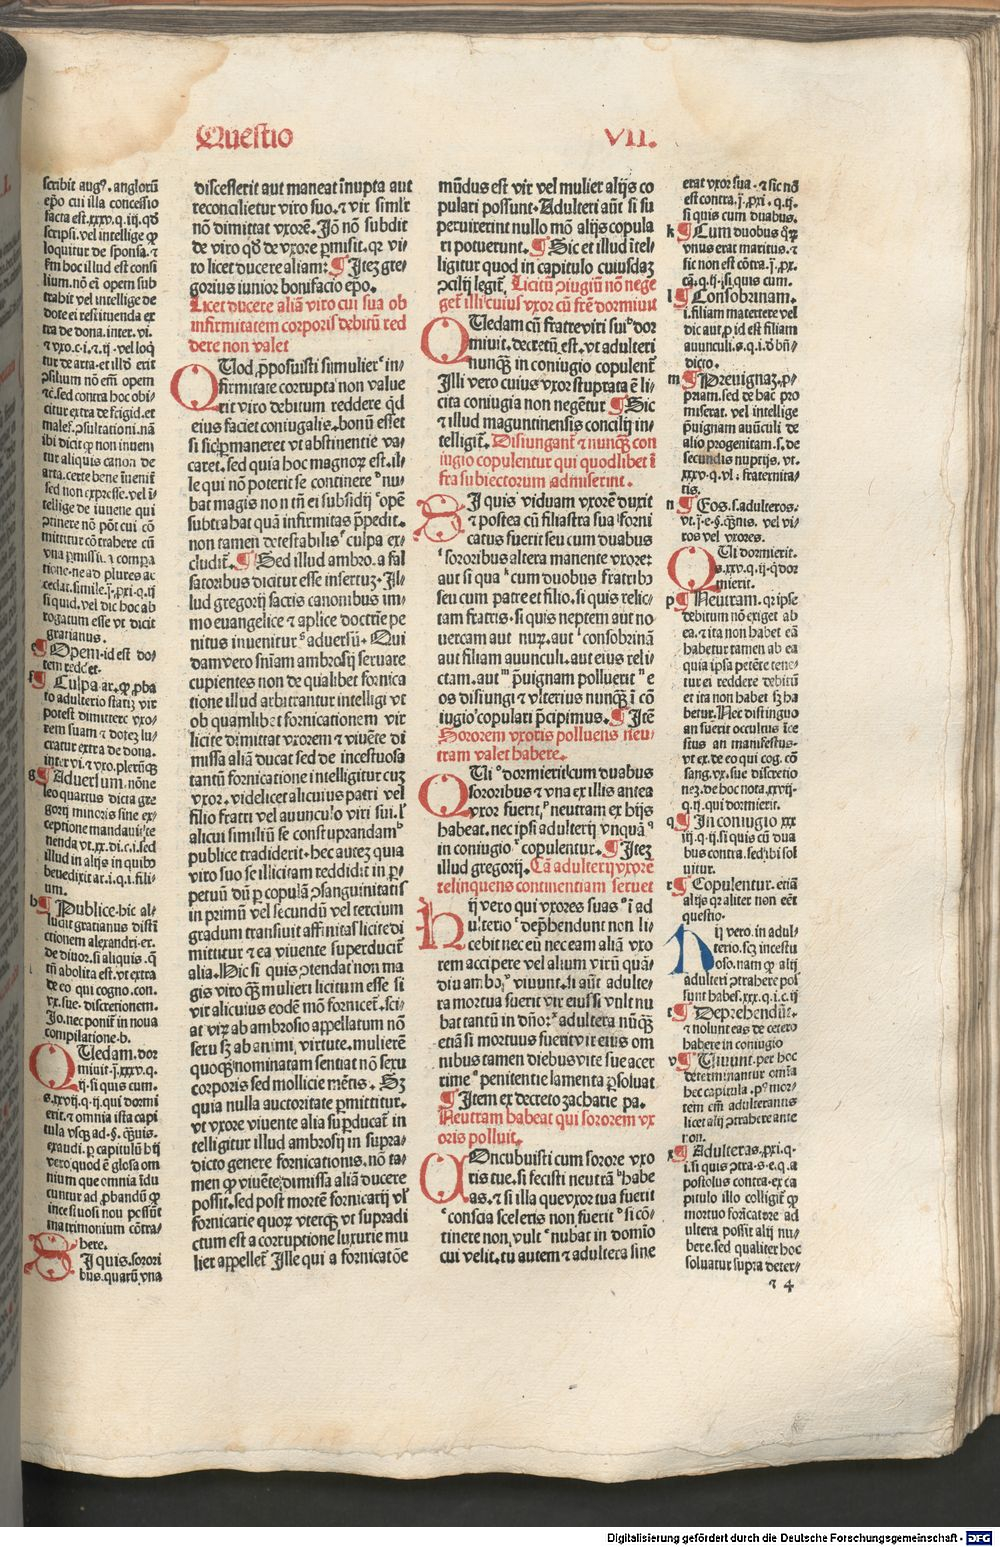 Questio VII.
scribit aug⁹. anglorū
ep̄o cui illa concessio
facta est.xxxv.q.iij.qd̄
scripsi.vel intellige ꝙ
loquitur de sponsa.⁊
lium.nō em̄ opem sub
trabit vel intellige de
dote ei restituenda ex
tra de dona.inter.vi.
ibi dicit ꝙ non inueni
tur aliquis canon de
sed non expresse.vel ī
tellige de iuuene qui
mittitur cōtrahere cū
si quid.vel dic hoc ab
rogatum esse vt dicit
gratianus.
Opem.id est do/
to adulterio statiꝫ vir
potest dimittere vxo/
rem suam ⁊ doteꝫ lu/
cratur extra de dona.
Aduersum.nōne
leo quartus dicta gre
gorij minoris sine ex/
nenda vt.xx.di.c.i.sed
illud in alijs in quibꝰ
benedixit ar.i.q.i.fili/
um.
Publice.hic al/
lucit gratianus disti
ctionem alexandri.et.
de diuor.si aliquis.q
de eo qui cogno.con.
vx.sue.discretionem.
Io.nec ponit in noua
compilatione.b.
Uedam.dor
miuit.j̄.xxxv.q.
ij.si quis cum.
s.xxvij.q.ij.qui dormi
erit.⁊ omnia ista capi
vero quod ē glosa om
nium que omnia īdu
cuntur ad ꝓbandū ꝙ
incestuosi non possūt
matrimonium cōtra/
bere.
I quis.sorori
bus.quarū vna
discesserit aut maneat īnupta aut
reconcilietur viro suo.⁊ vir simlr
nō dimittat vxorē. Jō nō subdit
de viro qd̄ de vxore ꝑmisit.qꝛ vi/
ro licet ducere aliam: ¶ Iteꝫ gre/
gorius iunior bonifacio ep̄o.
Licet ducere aliā viro cui sua ob
infirmitatem corporis debitū red
dere non valet
Uod ꝓposuisti si mulier in/
firmitate correpta non value
rit viro debitum reddere qd
eius faciet coniugalis.bonū esset
si sic ꝑmaneret vt abstinentie va/
caret.sed quia hoc magnoꝝ est.il/
le qui nō poterit se continere nu/
bat magis non tn̄ ei subsidij opē
subtrahat quā infirmitas p̄pedit.
non tamen detestabilis culpa ex/
cludit. ¶ Sed illud ambro.a fal
satoribus dicitur esse insertuꝫ. Il/
lud gregorij sacris canonibus im/
mo euangelice ⁊ aplice doctrīe pe
nitus inuenitur aduersū. Qui
dam vero sniam ambrosij seruare
cupientes non de qualibet fornica
tione illud arbitrantur intelligi vt
ob quamlibet fornicationem vir
licite dimittat vxorem ⁊ viuēte di
missa aliā ducat sed de incestuosa
tantū fornicatione intelligitur cuꝫ
vxor.videlicet alicuius patri vel
filio fratri vel auunculo viri sui.l̓
alicui similiū se constuprandam
publice tradiderit.hec auteꝫ quia
viro suo se illicitam reddidit in ꝑ/
petuū dū ꝑ copulā ꝯsanguinitatis
in primū vel secundū vel tercium
gradum transiuit affinitas licite di
mittitur ⁊ ea viuente superducit
alia. Hic si quis ꝯtendat non ma
gis viro qꝫ mulieri licitum esse si
vir alicuius eodē mō fornicet.sci/
at viꝝ ab ambrosio appellatum nō
sexu sꝫ ab animi virtute.mulierē
quoqꝫ nominatam sentiat nō sexu
corporis sed mollicie mētis. Sꝫ
quia nulla auctoritate ꝑmittitur.
vt vxore viuente alia suꝑducat in
telligitur illud ambrosij in supra/
dicto genere fornicationis.nō ta/
men ꝙ viuēte dimissa aliā ducere
possit.sed post mortē fornicarij vl̓
fornicarie quoꝝ vterqꝫ vt supradi
ctum est a corruptione luxurie mu
lier appellet Ille qui a fornicatōe
mūdus est vir vel mulier alijs co
pulari possunt. Adulteri aūt si su
peruixerint nullo mō alijs copula
ri poterunt. ¶ Sic et illud ītel/
ligitur quod in capitulo cuiusdaꝫ
ꝯcilij legit. Licitū ꝯiugiū nō nege
get illi cuius vxor cū frē dormiuit
Uedam cū fratre viri sui dor
miuit.decretū est.vt adulteri
nunqꝫ in coniugio copulent
Illi vero cuius vxor stuprata ē li/
cita coniugia non negētur ¶ Sic
⁊ illud maguntinensis concilij in/
telligit. Disiungant ⁊ nunqꝫ con
iugio copulentur qui quodlibet ī
fra subiectorum admiserint.
I quis viduam vxorē duxit
⁊ postea cū filiastra sua forni
catus fuerit seu cum duabus
sororibus altera manente vxore:
aut si qua cum duobus fratribꝰ
seu cum patre et filio.si quis relic/
tam fratris.si quis neptem aut no
uercam aut nurꝝ.aut consobrinā
aut filiam auunculi.aut eius reli/
ctam.aut p̄uignam polluerit e
os disiungi ⁊ vlterius nunqꝫ ī cō
iugio copulari p̄cipimus. ¶ Itē
Sororem vxoris polluens neu/
tram valet habere.
Ui dormierit cum duabus
sororibus ⁊ vna ex illis antea
vxor fuerit neutram ex hijs
habeat.nec ipsi adulterij vnquā
in coniugio copulentur. ¶ Iteꝫ
illud gregorij. Cā adulterij vxorē
relinquens continentiam seruet
ij vero qui vxores suas ī ad
ulterio dep̄hendunt non li/
cebit nec eū nec eam aliā vxo
rem accipere vel alium virū quā/
diu ambo viuunt.si aūt adulte/
ra mortua fuerit vir eius si vult nu
bat tantū in dn̄o: adultera nūqꝫ
etiā si mortuus fuerit vir eius om
nibus tamen diebus vite sue acer
rime penitentie lamenta ꝑsoluat
¶ Item ex decreto zacharie pa.
Neutram habeat qui sororem vx
oris polluit.
Oncubuisti cum sorore vxo
ris tue.si fecisti neutrā habe
as.⁊ si illa que vxor tua fuerit
conscia sceleris non fuerit si cō/
tinere non vult nubat in domīo
cui velit.tu autem ⁊ adultera sine
erat vxor sua.⁊ sic nō
est contra.j̄.pxi.q.ij.
si quis cum duabus.
k ¶ Cum duobus
vnus erat maritus.⁊
sic non est cōtra.j̄.ꝓx.
cā.q.ij.si quis cum.
l ¶ Consobrinam.
i.filiam matertere vel
dic aut ꝓ id est filiam
auunculi.s.q.i.d bn̄/
dicto.
m ¶ Preuignaꝫ.ꝓ/
priam.sed de hac pro
miserat.vel intellige
p̄uignam auūculi de
alio progenitam.s.de
secundis nuptijs.vt.
xxxv.q.vl.fraternita/
tis.
n ¶ Eos.s.adulteros.
ros vel vxores.
Ui dormierit.
s.xxv.q.ij.q̄ dor
mierit.
p ¶ Neutram.qꝛ ipse
debitum nō exiget ab
ea.⁊ ita non habet eā
habetur tamen ab ea
quia ipsa petēte tene/
tur ei reddere debitū
et ita non habet sꝫ ha
betur. Nec distinguo
an fuerit occultus ice
stus an manifestus.
vt ex.de eo qui cog.cō
sang.vx.sue discretio
neꝫ.de hoc nota.xxvij.
q.ij.qui dormierit.
q ¶ In coniugio xxx
iij.q.ij.si quis cū dua
bus contra.sed ibi sol
uitur.
r ¶ Copulentur.etiā
alijs qꝛ aliter non eēt
questio.
ij vero.in adul/
terio.scꝫ incestu
oso.nam ꝙ alij
adulteri ꝯtrahere pos
sunt habes.xxx.q.i.c.ij
t ¶ Deprehendūt.
⁊ nolunt eas de cetero
habere in coniugio
v ¶ Uiuunt.per hoc
determinantur om̄ia
hec capitula.pꝰ mor/
tem em̄ adulterantis
licet alij ꝯtrahere ante
non.
x ¶ Adulteras.pxi.q.
i.si quis ꝯtra.s.e.q.a
postolus contra.ex ca
pitulo illo colligit ꝙ
mortuo fornicatore ad
ultera possit alij nu/
bere.sed qualiter hoc
soluatur supra deter/
⁊ 4
Digitalisierung gefördert durch die Deutsche Forschungsgemeinschaft - DFG